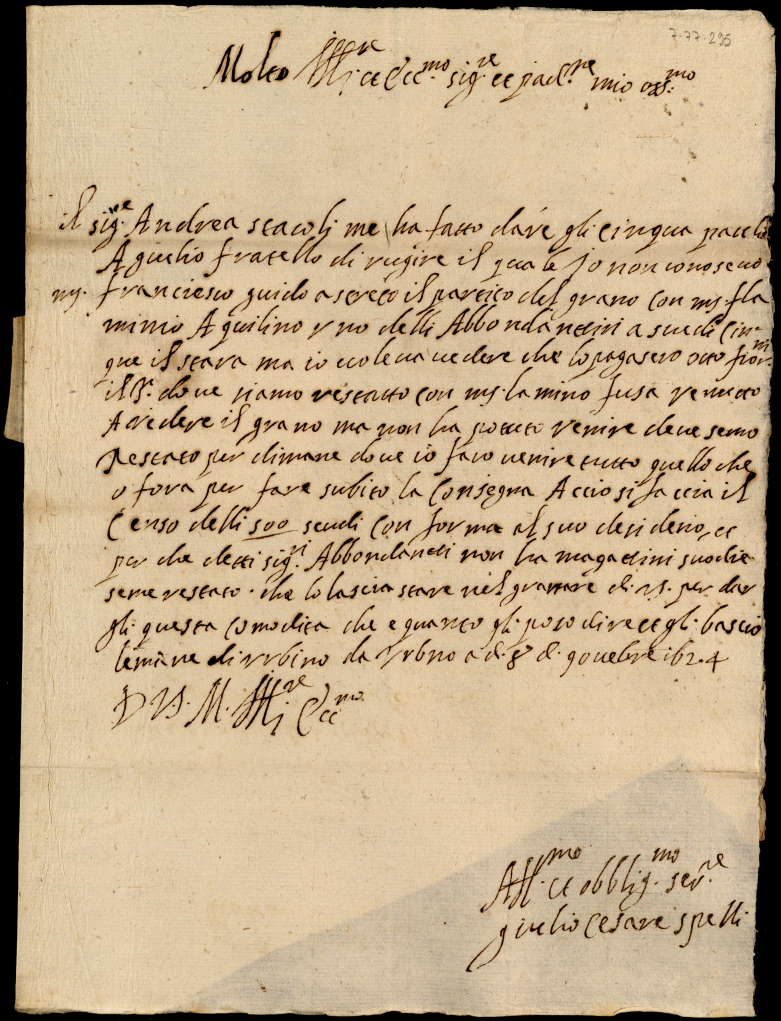 7-77-295
Molto Ill.re et Ecc.mo sig.re et pad.ne mio oss.mo
il sig.re Andrea stacolj me ha fatto dare gli cinqua
A giulio fratello di rugire il quale Jo non conosceuo
mj. franciesco guido a sereto il partito del grano con mj. fla
minio Aquilino uno delli Abbondantini a scudi cin
que il stara ma io uoleua uedere che lo pagasero otto fior
il doue siamo restatto con mj. lamino fusa venutto
A vedere il grano ma non ha potuto venire doue semo
restato per dimane doue io faro uenire tutto quello che
o fora per fare subito la Consegna Accio si faccia il
Censo delli 500 scudi con forma al suo desiderio, et
per che detti sig.ri Abbondanti non ha magattini suo
seme restato che lo lascia stare nel di V.S. per dar
gli questa comodita che e quanto gli poso dire et gli bascio
le mane di vrbino da Vrbno a d. 8 d. 9ouebre 1624
D V.S. M. Ill.re Ecc.mo
Aff.mo et obblig.mo ser.re
giulio Cesare spelli